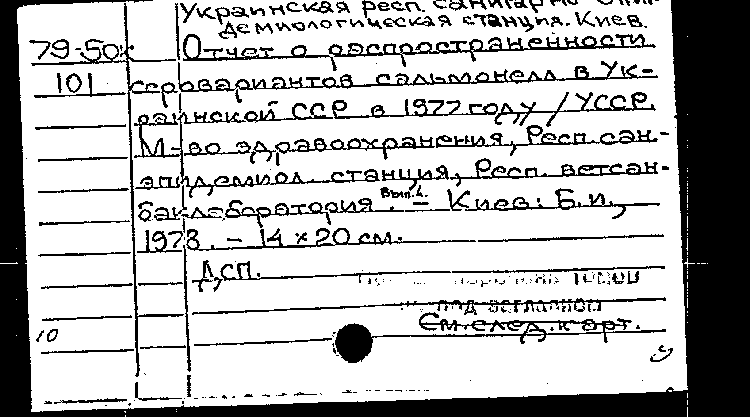 Украинская респ. санитарно-эпи-
демиологическая станция. Киев.
79-50к Отчет о распространенности
101 сероварiантов сальмонелл в Ук-
раинской ССР в 1977 году / УССР.
М-во здравоохранения, Респ. сан.-
эпидемиол. станция, Респ. ветсан-
баклаборатория. Вып.1. – Киев: Б.и.,
1978. – 14 × 20 см.
Дсп.
томов
под заглавием
См. след. карт.
10